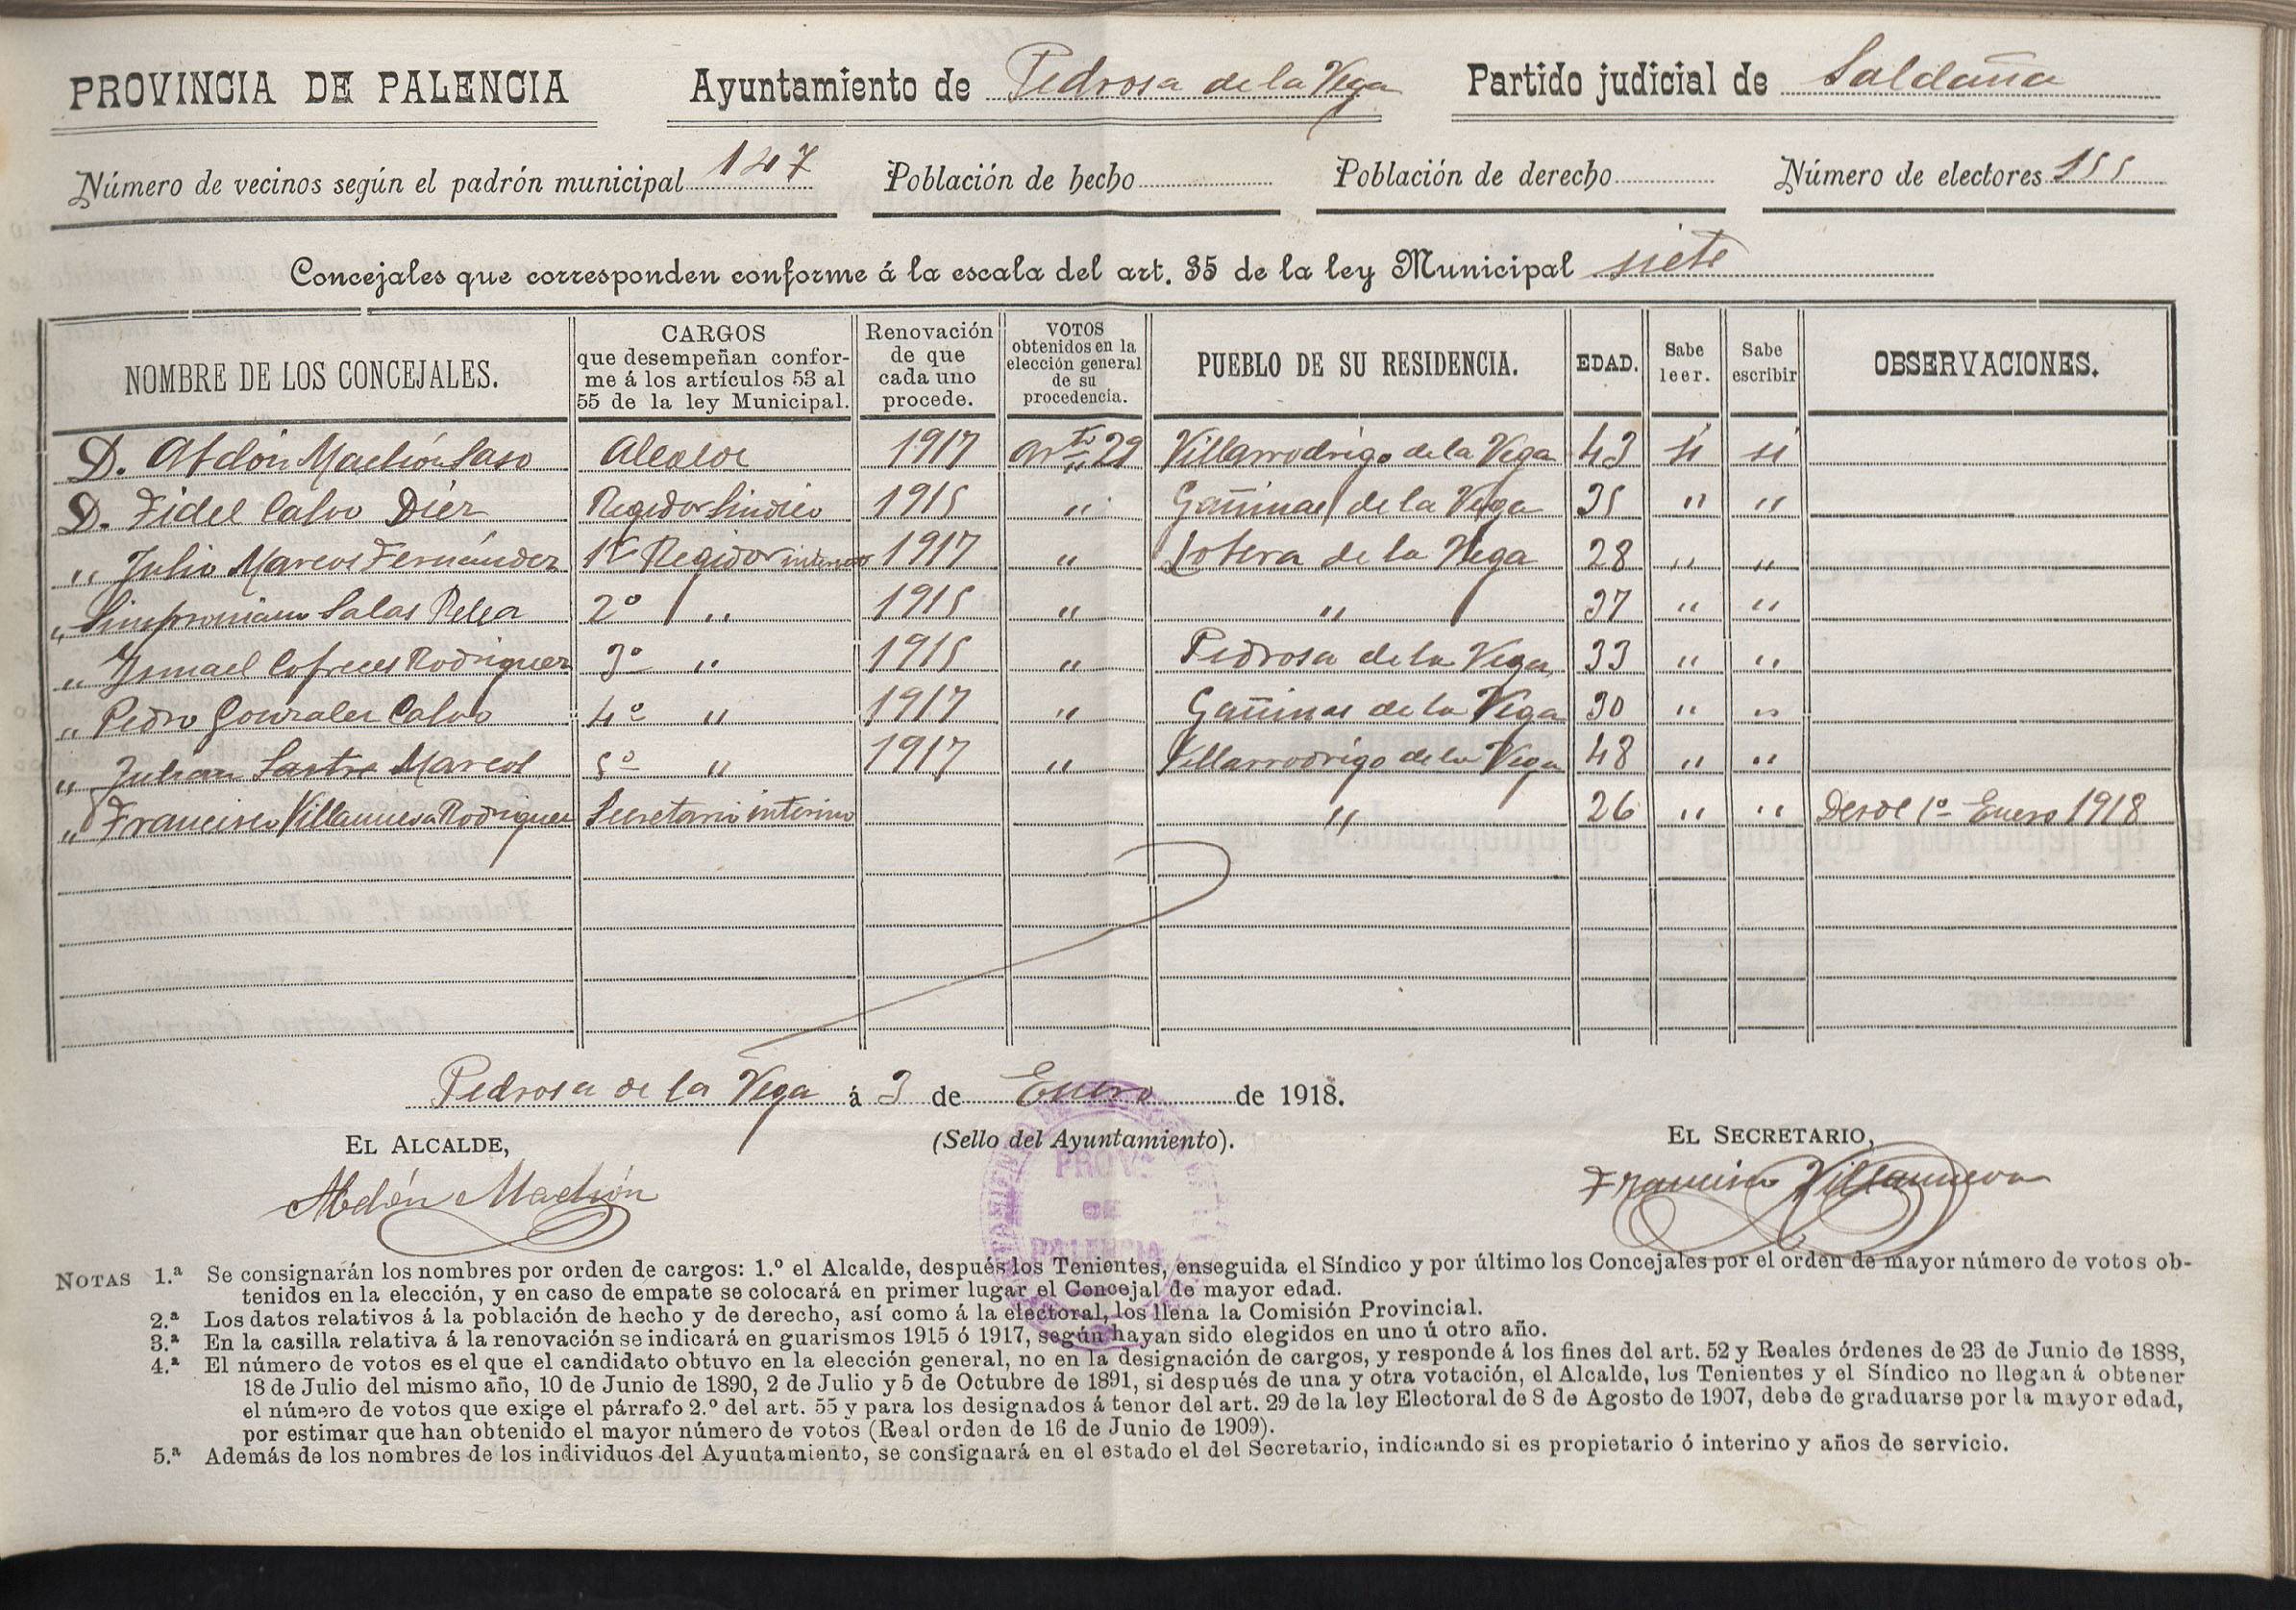 PROVINCIA DE PALENCIA Ayuntamiento de Pedrosa de la Vega Partido judicial de Saldaña
Número de vecinos según el padrón municipal 147 Población de hecho Población de derecho Número de electores 155
Concejales que corresponden conforme á la escala del art. 35 de la ley Municipal siete
NOMBRE DE LOS CONCEJALES. CARGOS que desempeñan conforme á los artículos 53 al 55 de la ley Municipal. Renovación de que cada uno procede. VOTOS obtenidos en la elección general de su procedencia. PUEBLO DE SU RESIDENCIA. EDAD. Sabe leer. Sabe escribir OBSERVACIONES.
D. Abdón Machón Laso Alcalde 1917 29 Villarrodrigo de la Vega 43 si si
D. Fidel Calvo Diez Regidor Sindico 1915 " Gañinas de la Vega 35 " "
" Julio Marcos Fernández 1º Regidor interino 1917 " Lobera de la Vega 28 " "
" Simproniano Salas Relea 2º " 1915 " " 37 " "
" Ysmael Cofreces Rodriguez 3º " 1915 " Pedrosa de la Vega 33 " "
" Pedro Gonzalez Calvo 4º " 1917 " Gañinas de la Vega 30 " "
" Julián Sastre Marcos 5º " 1917 " Villarrodrigo de la Vega 48 " "
" Francisco Villanueva Rodriguez Secretario interino " 26 " " Desde 1º Enero 1918
Pedrosa de la Vega á 3 de Enero de 1918.
EL ALCALDE, (Sello del Ayuntamiento). EL SECRETARIO,
Abdón Machón Francisco Villanueva
PROVª
DE
PALENCIA
NOTAS 1.ª Se consignarán los nombres por orden de cargos: 1.º el Alcalde, después los Tenientes, enseguida el Síndico y por último los Concejales por el orden de mayor número de votos ob-
tenidos en la elección, y en caso de empate se colocará en primer lugar el Concejal de mayor edad.
2.ª Los datos relativos á la población de hecho y de derecho, así como á la electoral, los llena la Comisión Provincial.
3.ª En la casilla relativa á la renovación se indicará en guarismos 1915 ó 1917, según hayan sido elegidos en uno ú otro año.
4.ª El número de votos es el que el candidato obtuvo en la elección general, no en la designación de cargos, y responde á los fines del art. 52 y Reales órdenes de 23 de Junio de 1888,
18 de Julio del mismo año, 10 de Junio de 1890, 2 de Julio y 5 de Octubre de 1891, si después de una y otra votación, el Alcalde, los Tenientes y el Síndico no llegan á obtener
el número de votos que exige el párrafo 2.º del art. 55 y para los designados á tenor del art. 29 de la ley Electoral de 8 de Agosto de 1907, debe de graduarse por la mayor edad,
por estimar que han obtenido el mayor número de votos (Real orden de 16 de Junio de 1909).
5.ª Además de los nombres de los individuos del Ayuntamiento, se consignará en el estado el del Secretario, indicando si es propietario ó interino y años de servicio.